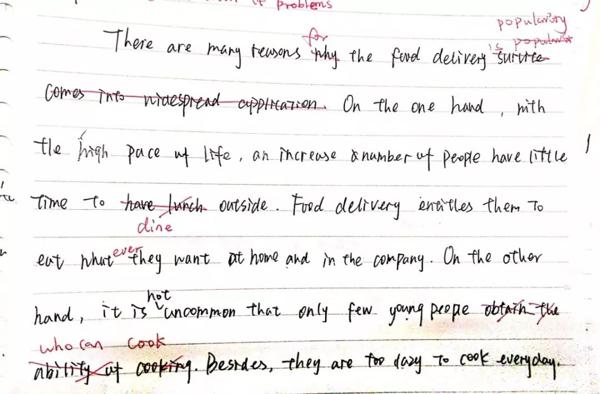 if problems
popularity
for is popular
There are many reasons why the food delivery survice
comes into widespread application. On the one hand, with
the high pace of life, an increase a number of people have little
time to have lunch outside. Food delivery entitles them to
dine
eat what ever they want at home and in the company. On the other
not
hand, it is uncommon that only few young people obtain the
who can cook
ability of cooking. Besides, they are too lazy to cook everyday.